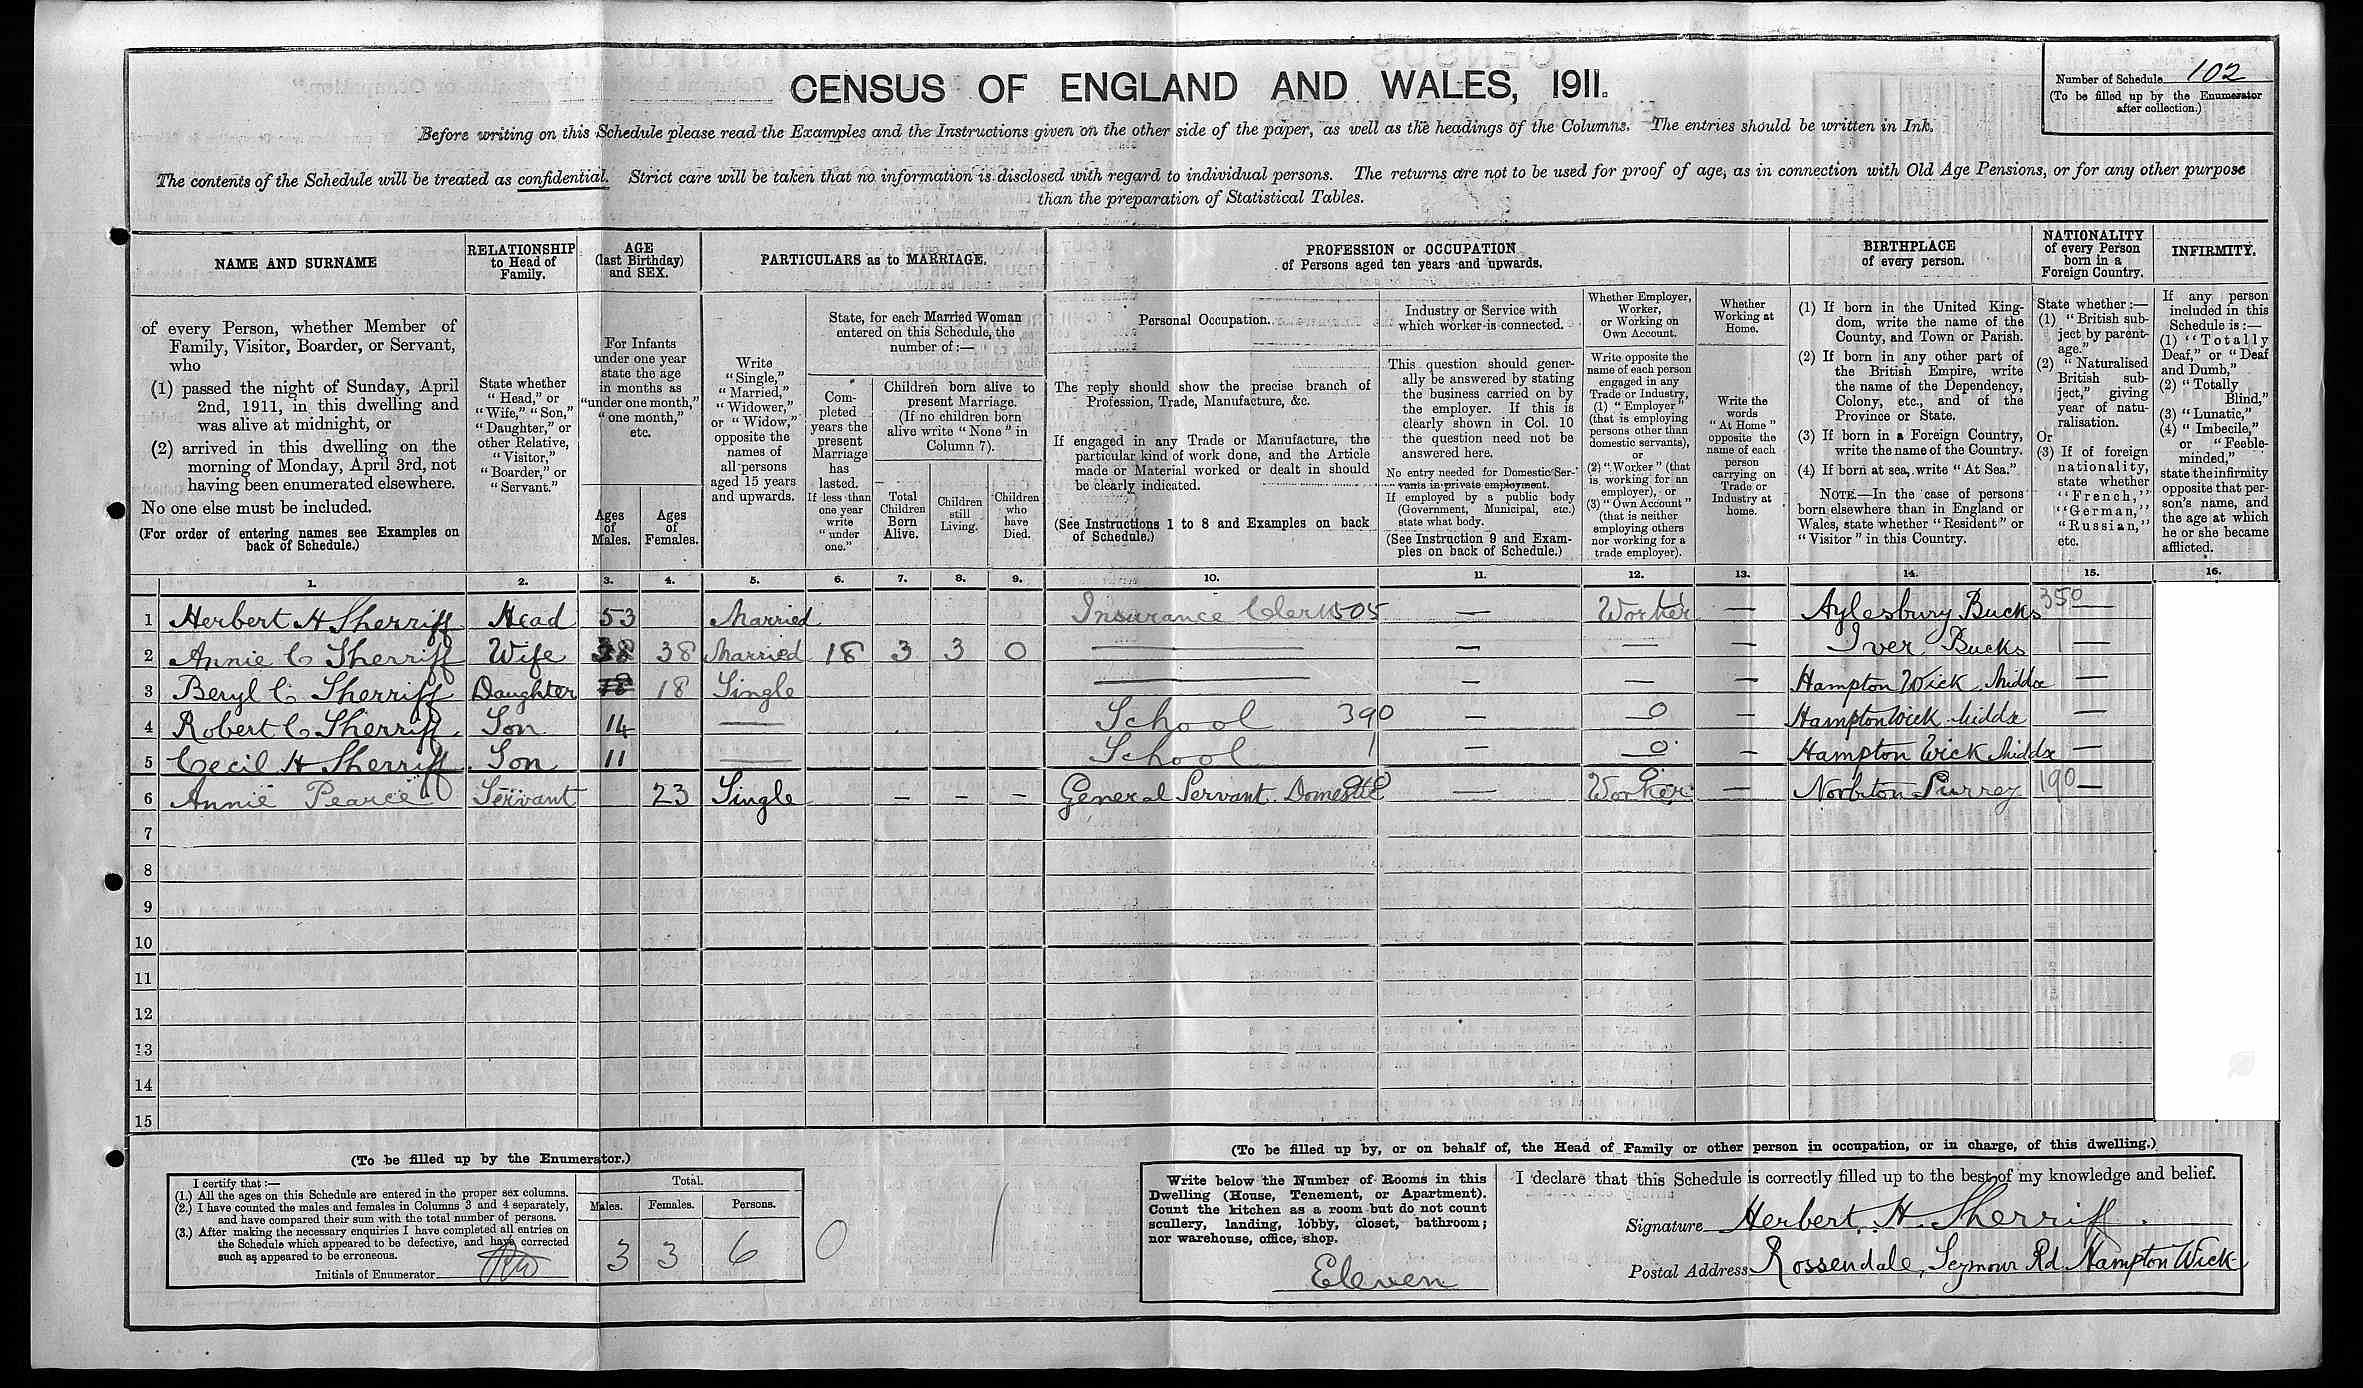 CENSUS OF ENGLAND AND WALES, 1911.
Number of Schedule 102
(To be filled up by the Enumerator
after collection.)
Before writing on this Schedule please read the Examples and the Instructions given on the other side of the paper, as well as the headings of the Columns. The entries should be written in Ink.
The contents of the Schedule will be treated as confidential. Strict care will be taken that no information is disclosed with regard to individual persons. The returns are not to be used for proof of age, as in connection with Old Age Pensions, or for any other purpose
than the preparation of Statistical Tables.
NAME AND SURNAME
of every Person, whether Member of
Family, Visitor, Boarder, or Servant,
who
(1) passed the night of Sunday, April
2nd, 1911, in this dwelling and
was alive at midnight, or
(2) arrived in this dwelling on the
morning of Monday, April 3rd, not
having been enumerated elsewhere.
No one else must be included.
(For order of entering names see Examples on
back of Schedule.)
RELATIONSHIP
to Head of
Family.
State whether
"Head," or
"Wife," "Son,"
"Daughter," or
other Relative,
"Visitor,"
"Boarder," or
"Servant."
AGE
(last Birthday)
and SEX.
For Infants
under one year
state the age
in months as
"under one month,"
"one month,"
etc.
Ages
of
Males.
Ages
of
Females.
PARTICULARS as to MARRIAGE.
Write
"Single,"
"Married,"
"Widower,"
or "Widow,"
opposite the
names of
all persons
aged 15 years
and upwards.
State, for each Married Woman
entered on this Schedule, the
number of :—
Com-
pleted
years the
present
Marriage
has
lasted.
If less than
one year
write
"under
one."
Children born alive to
present Marriage.
(If no children born
alive write "None" in
Column 7).
Total
Children
Born
Alive.
Children
still
Living.
Children
who
have
Died.
PROFESSION or OCCUPATION
of Persons aged ten years and upwards.
Personal Occupation.
The reply should show the precise branch of
Profession, Trade, Manufacture, &c.
If engaged in any Trade or Manufacture, the
particular kind of work done, and the Article
made or Material worked or dealt in should
be clearly indicated.
(See Instructions 1 to 8 and Examples on back
of Schedule.)
Industry or Service with
which worker is connected.
This question should gener-
ally be answered by stating
the business carried on by
the employer. If this is
clearly shown in Col. 10
the question need not be
answered here.
No entry needed for Domestic Ser-
vants in private employment.
If employed by a public body
(Government, Municipal, etc.)
state what body.
(See Instruction 9 and Exam-
ples on back of Schedule.)
Whether Employer,
Worker,
or Working on
Own Account.
Write opposite the
name of each person
engaged in any
Trade or Industry,
(1) "Employer"
(that is employing
persons other than
domestic servants),
or
(2) "Worker" (that
is working for an
employer), or
(3) "Own Account"
(that is neither
employing others
nor working for a
trade employer).
Whether
Working at
Home.
Write the
words
"At Home"
opposite the
name of each
person
carrying on
Trade or
Industry at
home.
BIRTHPLACE
of every person.
(1) If born in the United King-
dom, write the name of the
County, and Town or Parish.
(2) If born in any other part of
the British Empire, write
the name of the Dependency,
Colony, etc., and of the
Province or State.
(3) If born in a Foreign Country,
write the name of the Country.
(4) If born at sea, write "At Sea."
NOTE.—In the case of persons
born elsewhere than in England or
Wales, state whether "Resident" or
"Visitor" in this Country.
NATIONALITY
of every Person
born in a
Foreign Country.
State whether :—
(1) "British sub-
ject by parent-
age."
(2) "Naturalised
British sub-
ject," giving
year of natu-
ralisation.
Or
(3) If of foreign
nationality,
state whether
"French,"
"German,"
"Russian,"
etc.
INFIRMITY.
If any person
included in this
Schedule is :—
(1) "Totally
Deaf," or "Deaf
and Dumb,"
(2) "Totally
Blind,"
(3) "Lunatic,"
(4) "Imbecile,"
or "Feeble-
minded,"
state the infirmity
opposite that per-
son's name, and
the age at which
he or she became
afflicted.
1. 2. 3. 4. 5. 6. 7. 8. 9. 10. 11. 12. 13. 14. 15. 16.
1 Herbert H Sherriff Head 53 Married Insurance Clerk 505 — Worker — Aylesbury Bucks 350 —
2 Annie C Sherriff Wife 38 38 Married 18 3 3 0 — — — — Iver Bucks —
3 Beryl C Sherriff Daughter 18 18 Single — — — — Hampton Wick Middx —
4 Robert C Sherriff Son 14 — School 390 — 0 — Hampton Wick Middx —
5 Cecil H Sherriff Son 11 — School — 0 — Hampton Wick Middx —
6 Annie Pearce Servant 23 Single — — — General Servant Domestic — Worker — Norbiton Surrey 190 —
7
8
9
10
11
12
13
14
15
(To be filled up by the Enumerator.)
I certify that :—
(1.) All the ages on this Schedule are entered in the proper sex columns.
(2.) I have counted the males and females in Columns 3 and 4 separately,
and have compared their sum with the total number of persons.
(3.) After making the necessary enquiries I have completed all entries on
the Schedule which appeared to be defective, and have corrected
such as appeared to be erroneous.
Initials of Enumerator
Total.
Males. Females. Persons.
3 3 6 0
(To be filled up by, or on behalf of, the Head of Family or other person in occupation, or in charge, of this dwelling.)
Write below the Number of Rooms in this
Dwelling (House, Tenement, or Apartment).
Count the kitchen as a room but do not count
scullery, landing, lobby, closet, bathroom;
nor warehouse, office, shop.
Eleven
I declare that this Schedule is correctly filled up to the best of my knowledge and belief.
Signature Herbert H. Sherriff.
Postal Address Rossendale, Seymour Rd. Hampton Wick